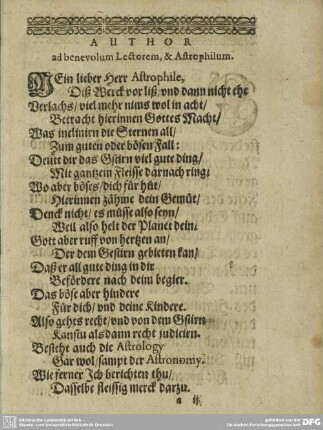 AUTHOR
ad benevolum Lectorem, & Astrophilum.
MEin lieber Herr Astrophile,
Diß Werck vor liß/ vnd dann nicht ehe
Verlachs/ viel mehr nims wol in acht/
Betracht hierinnen Gottes Macht/
Was inclinirn die Sternen all/
Zum guten oder bösen Fall:
Deutt dir das Gstirn viel gute ding/
Mit gantzem Fleisse darnach ring;
Wo aber böses/ dich für hüt/
Hierinnen zähme dein Gemüt/
Denck nicht/ es müsse also seyn/
Weil also helt der Planet dein;
Gott aber ruff von hertzen an/
Der dem Gestirn gebieten kan/
Daß er all gute ding in dir
Befördere nach deim begier.
Das böse aber hindere
Für dich/ vnd deine Kindere.
Also gehts recht/ vnd von dem Gstirn
Kanstu als dann recht judicirn.
Besteht auch die Astrology
Gar wol/ sampt der Astronomy.
Wie ferner Ich berichten thu/
Dasselbe fleissig merck darzu.
a ij